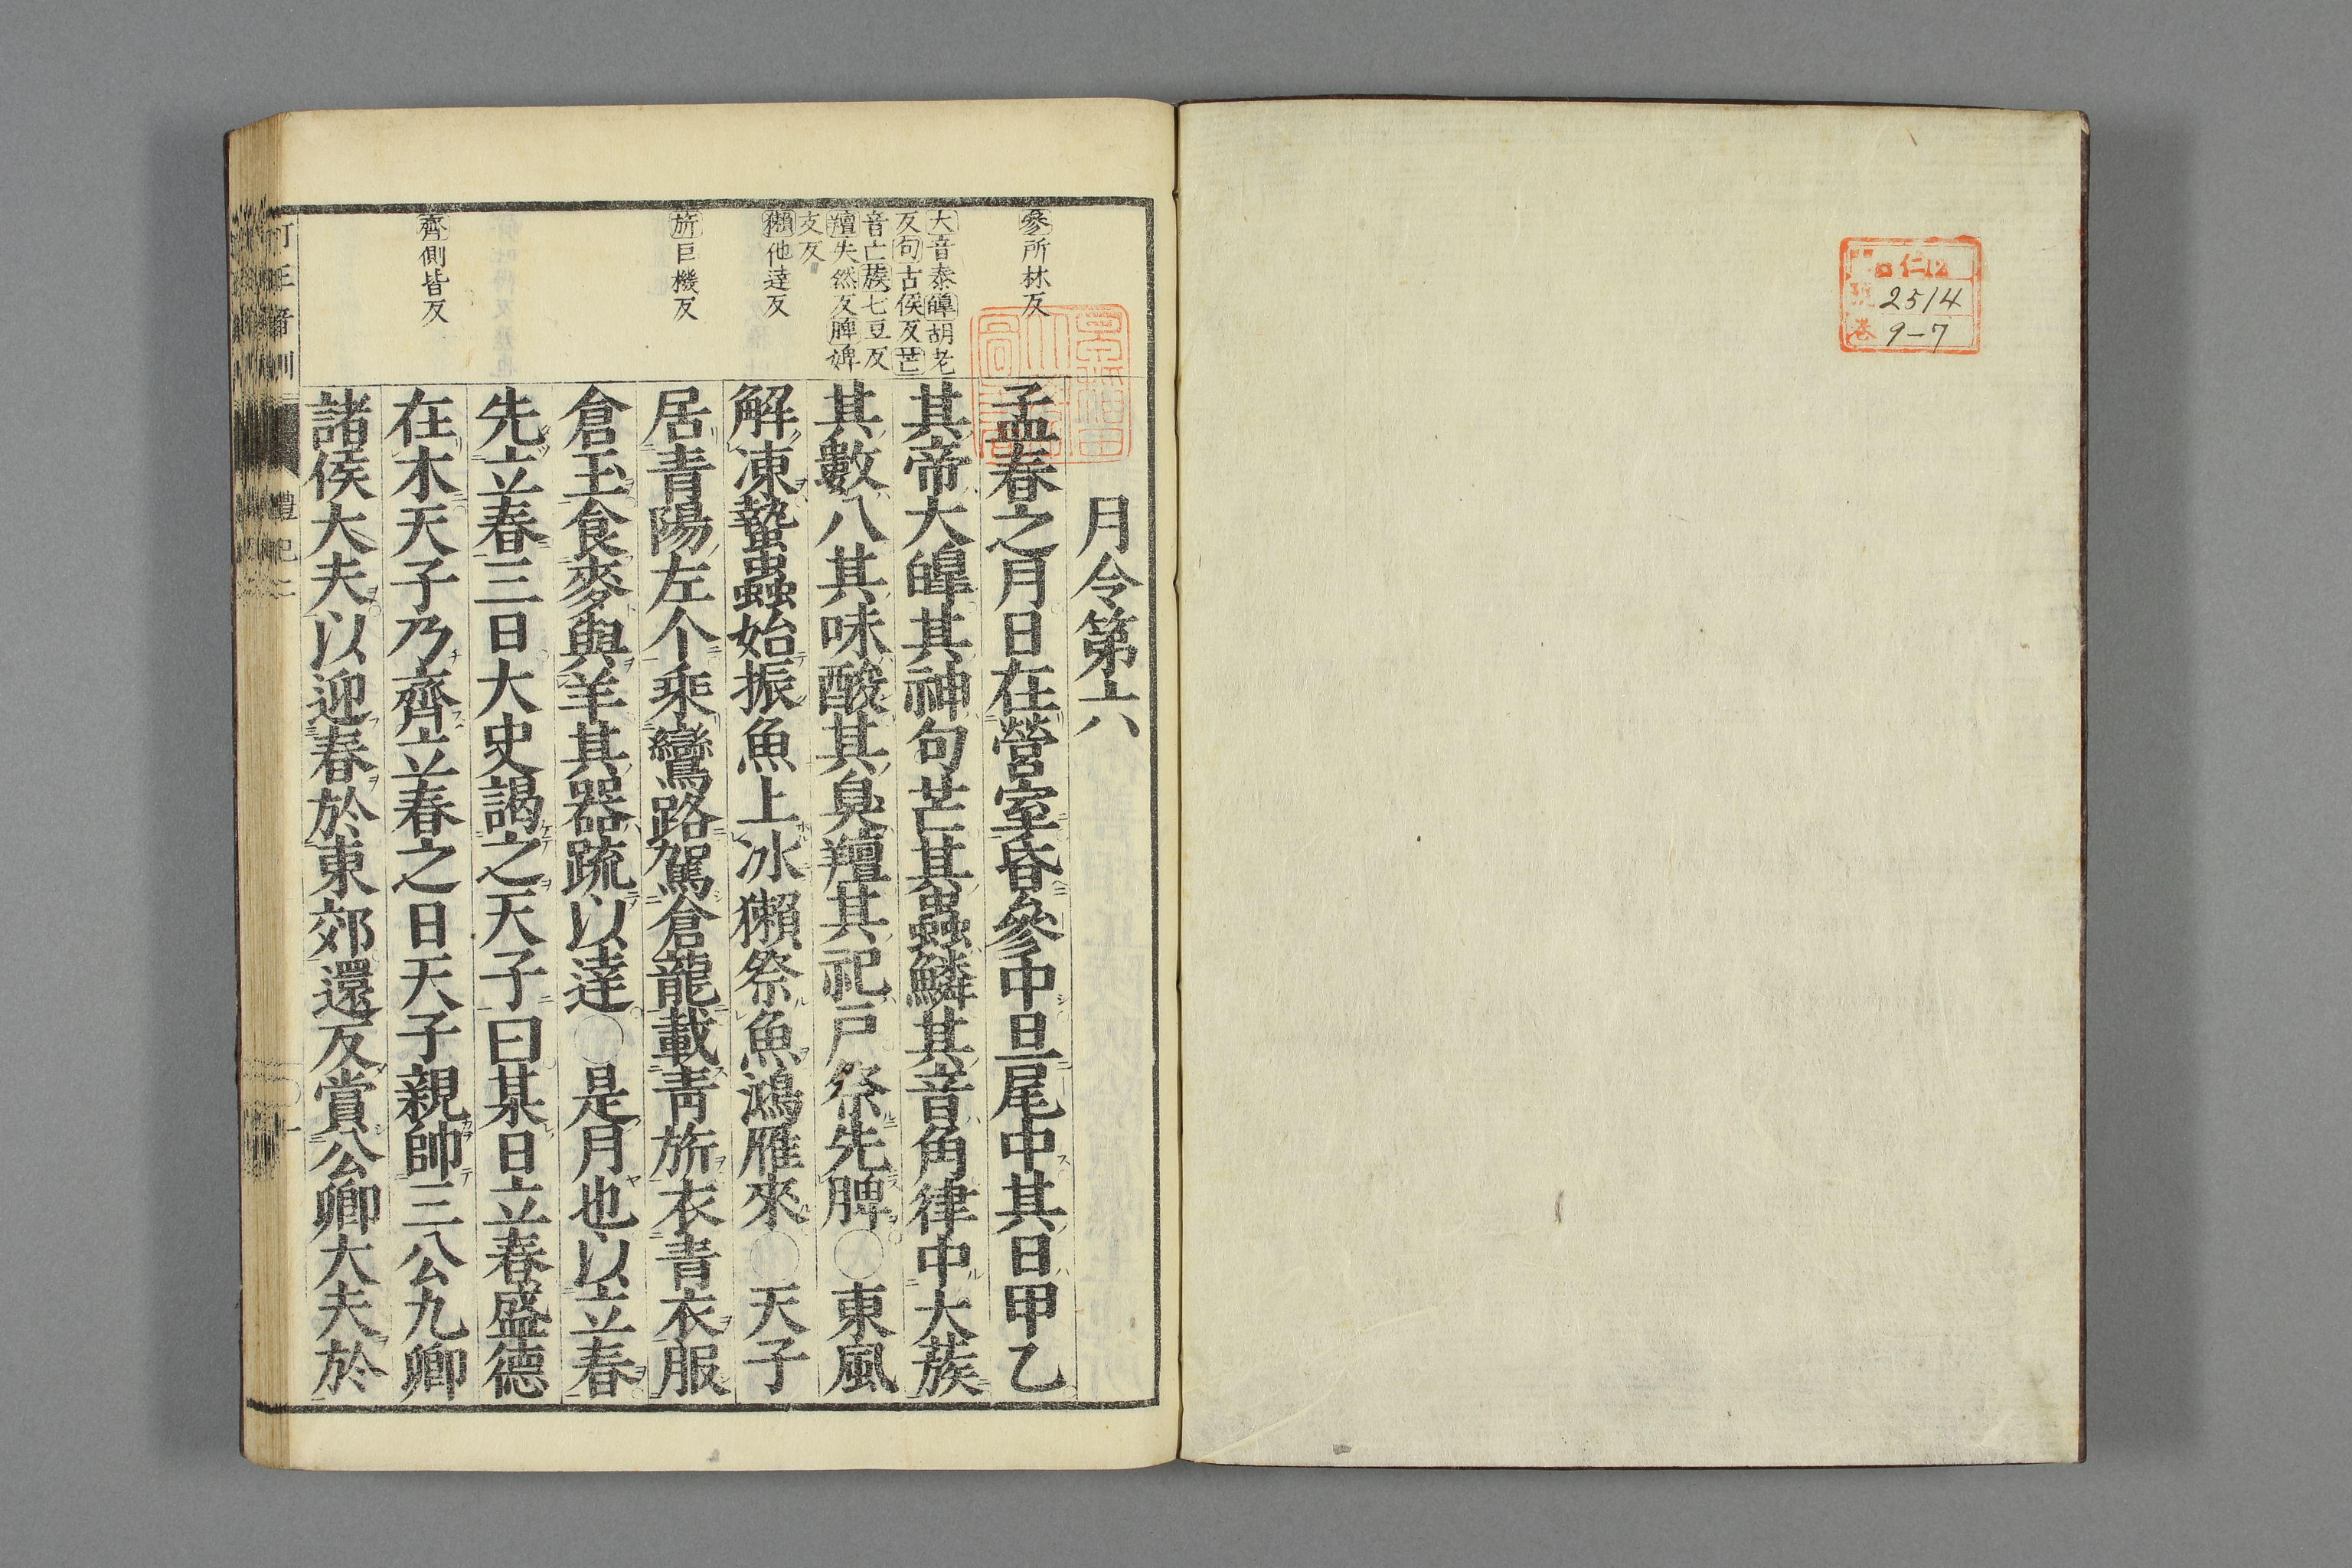 仁12
2514
9-7
月令第六
孟春之月日在營室昏參中旦尾中其日甲乙
其帝大皥其神句芒其蟲鱗其音角律中大蔟
其數八其味酸其臭羶其祀戶祭先脾○東風
解凍蟄蟲始振魚上冰獺祭魚鴻雁來○天子
居青陽左个乘鸞路駕倉龍載青旂衣青衣服
倉玉食麥與羊其器疏以達○是月也以立春
先立春三日大史謁之天子曰某日立春盛德
在木天子乃齊立春之日天子親帥三公九卿
諸侯大夫以迎春於東郊還反賞公卿大夫於
參所林反
大音泰皥胡老
反句古侯反芒
音亡蔟七豆反
羶失然反脾婢
支反
獺他達反
旂巨機反
齊側皆反
訂正音訓
禮記二
一